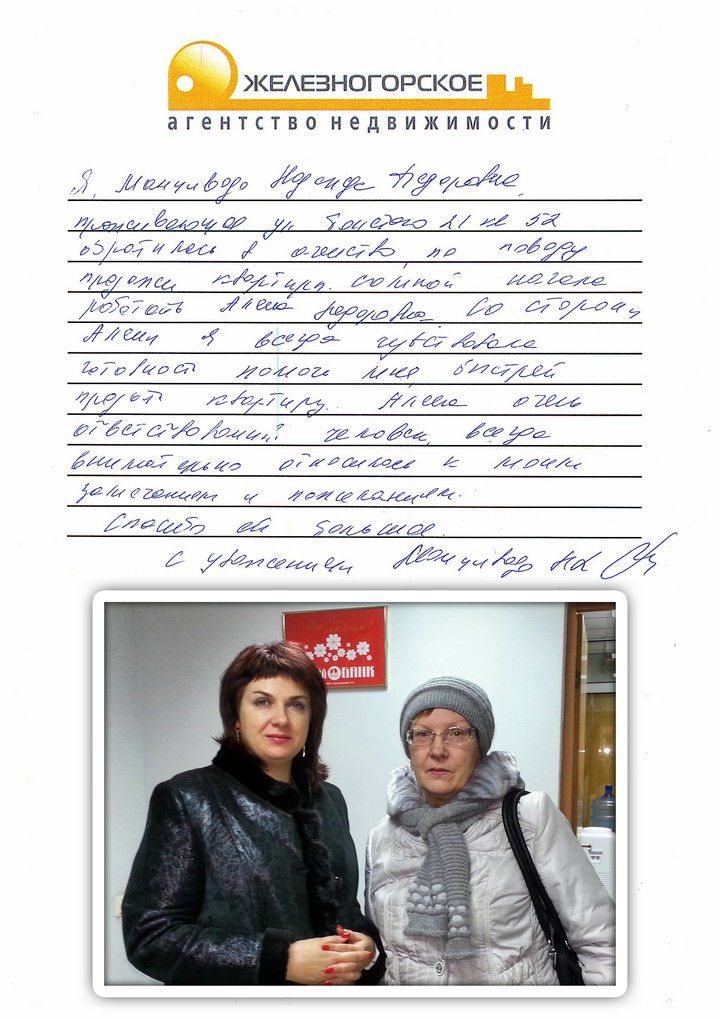 ЖЕЛЕЗНОГОРСКОЕ
агентство недвижимости
Я, Надежда Федоровна,
проживающая ул Толстого 21 кв 52
обратилась в агенство по поводу
продажи квартиры. со мной начала
работать Алена Федоровна. Со стороны
Алены я всегда чувствовала
готовность помочь мне быстрей
продать квартиру. Алена очень
человек, всегда
внимательно относилась к моим
замечаниям и пожеланиям.
Спасибо ей большое.
С уважением
БАНК